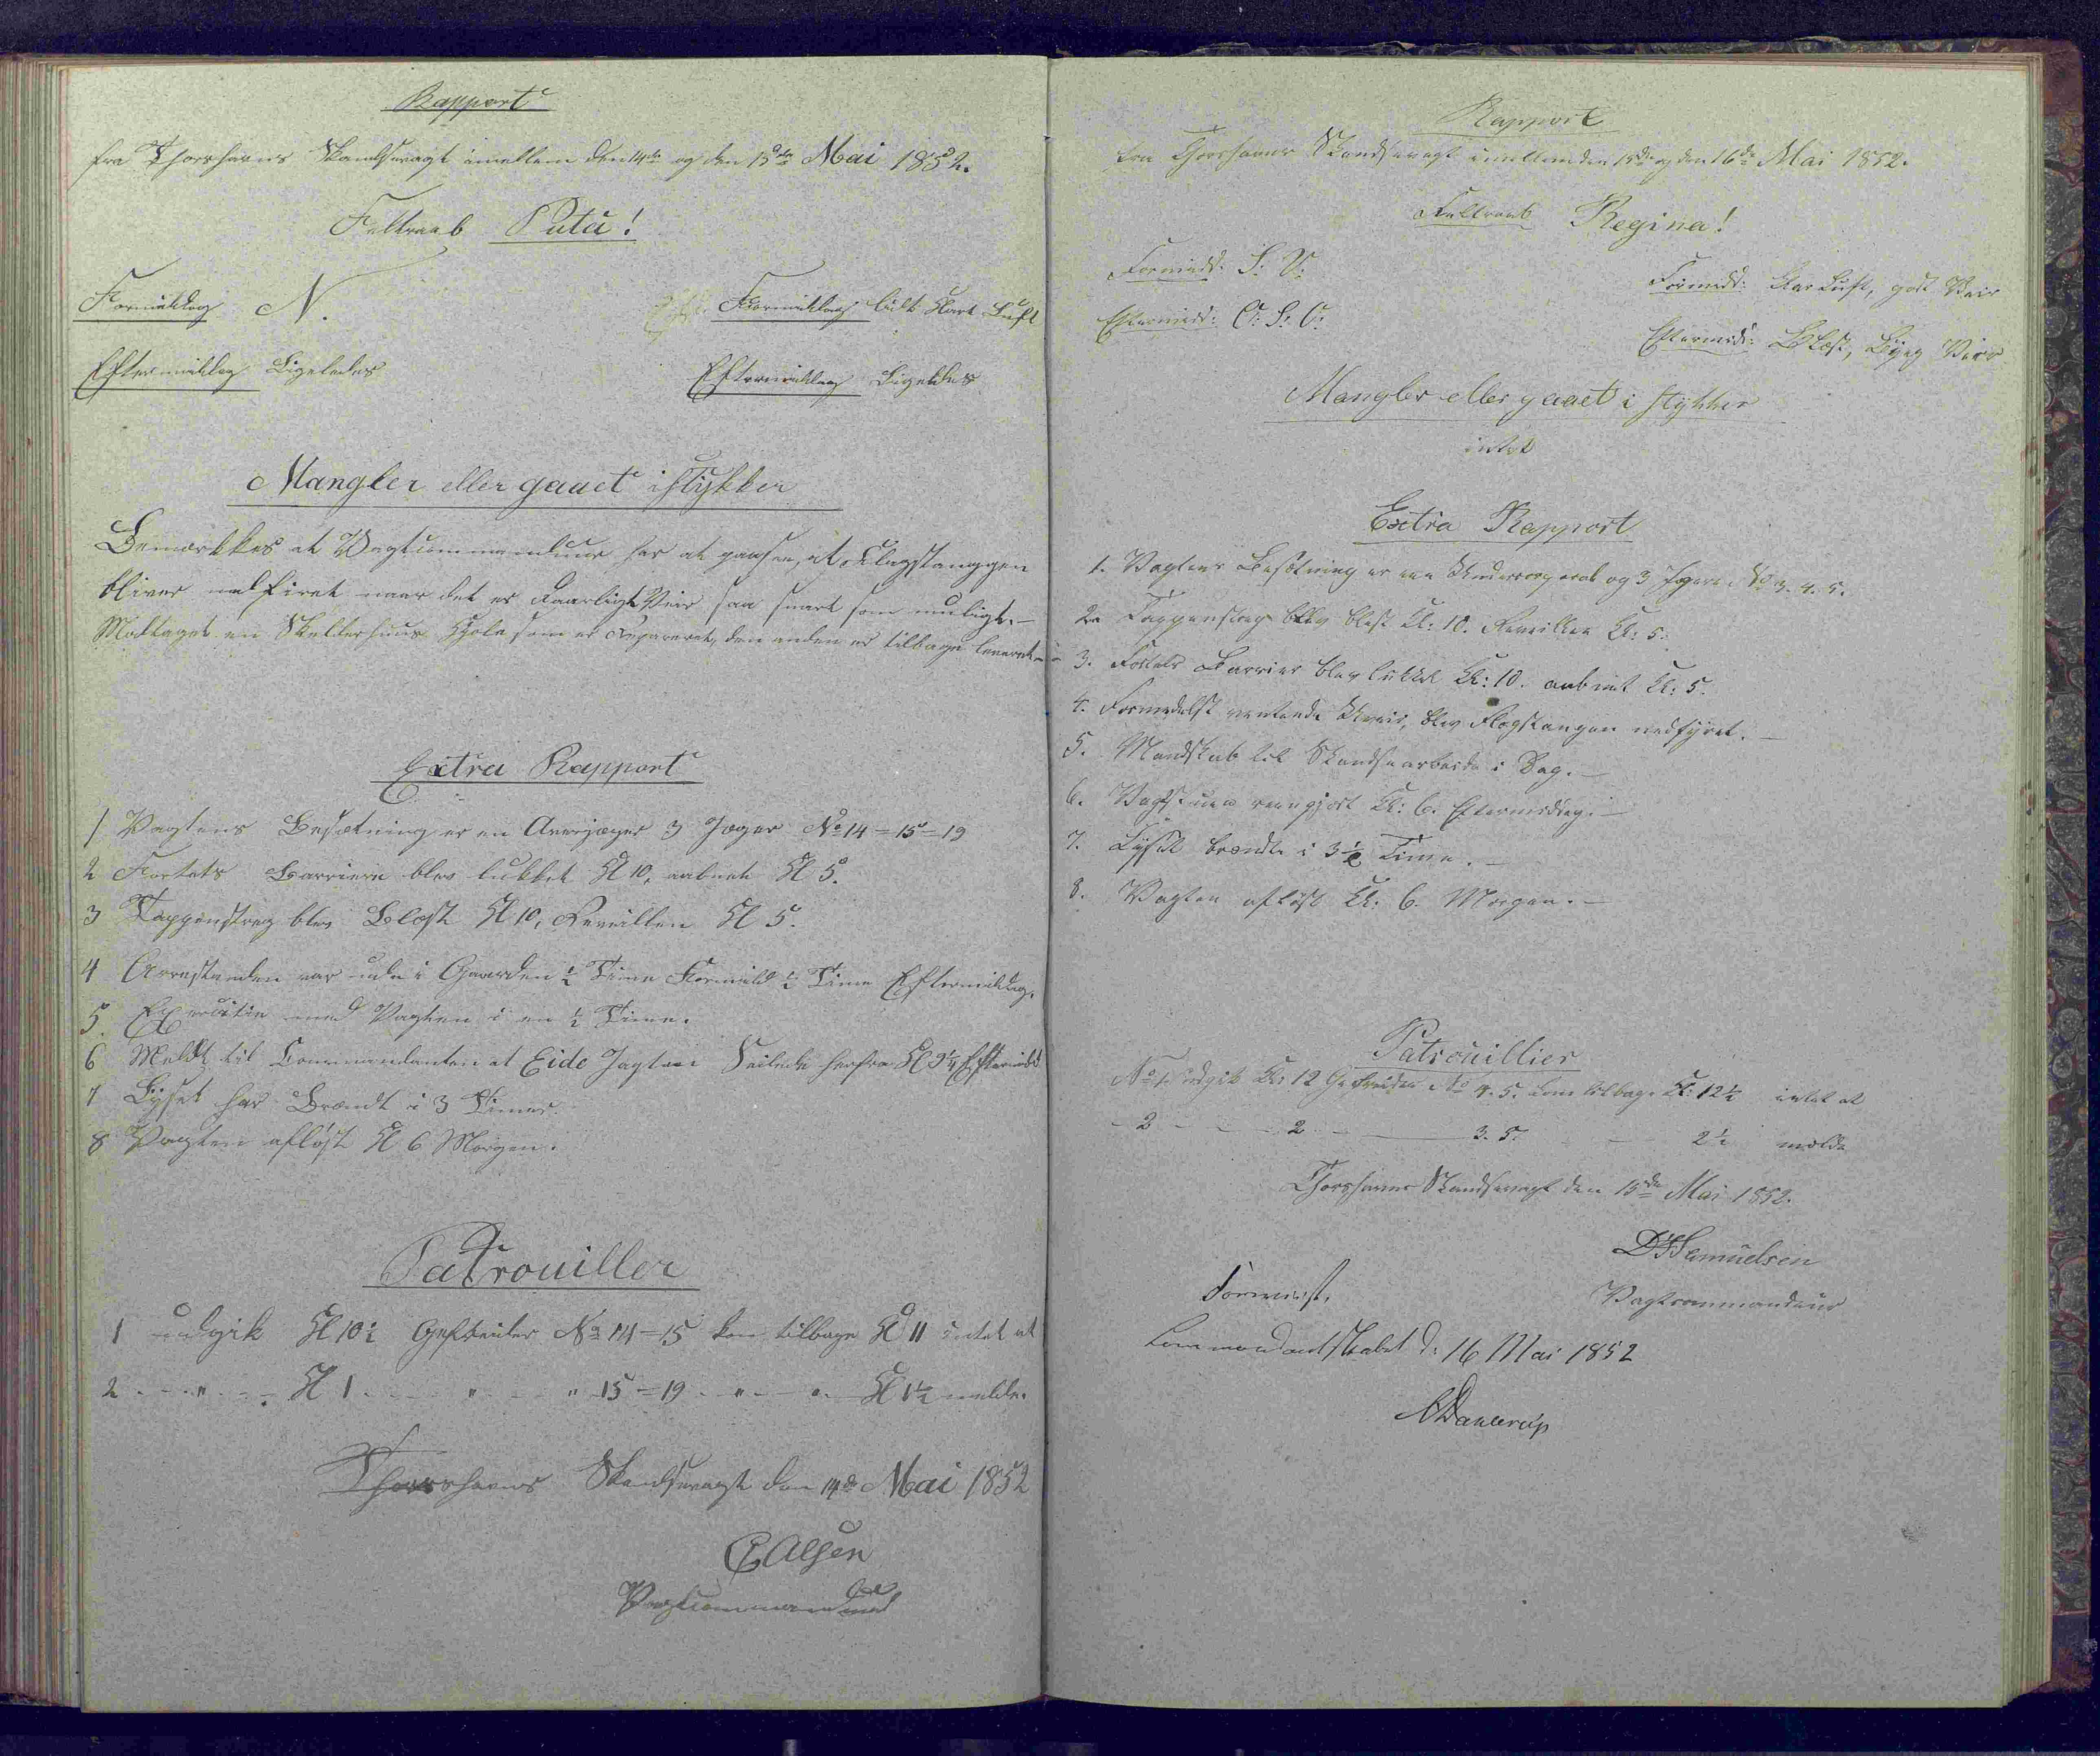 Rapport
fra Thorshavns Skandsevagt imellem den 14de og den 15de Mai 1852.
Feltraab Puta!
Formiddag N.
Formiddag lidt klart Luft
Eftermiddag Ligeledes
Eftermiddag Ligeledes
Mangler eller gaaet i stykker
Bemærkkes at Vagtcommandeur har at paasee, at Flagstanggen
bliver nedfiret naar det er Daarligt Veir saa snart som muligt.-
Modtaget en Skelterhuus Kjole som er Repareret, den anden er tilbage leveret.-
Extra Rapport
1 Vagtens Besætning er en Overjæger 3 Jæger No 14 = 15 = 19
2 Fortets Barriere blev lukket Kl 10, aabnet Kl 5.
3 Tappenstreg blev Blæst Kl 10, Reveillen Kl 5.
4 Arrestanden var ude i Gaarden ½ Time Formidd ½ Time Eftermiddag.
5 Exercitie med Vagten i en ½ Time.
6 Meldt til Commandanten at Eide Jagten Seilede herfra Kl 9¼ Eftermidd
7 Lyset har Brændt i 3 Timer.
8 Vagten afløst Kl 6 Morgen.
Patrouiller
1 udgik Kl 10½ Gefreider No 14 = 15 kom tilbage Kl 11 intet at
2 - " - Kl 1 - " - " 15 = 19 - " - " - Kl 1½ melde.
Thorshavns Skandsevagt den 14de Mai 1852
Olsen
Vagtcommandeur
Rapport
fra Thorshavns Skandsevagt imellem den 15de og den 16de Mai 1852.
Feltraab Regina!
Formidd: S: V:
Formidd: klar Luft, godt Veir
Eftermidd: O: S: O:
Eftermidd: Blæst, Byg Veir
Mangler eller gaaet i stykker
intet
Extra Rapport
1. Vagtens Besætning er en Undercorporal og 3 Jægere No 3. 4. 5.
2. Tappenstreg blev blæst Kl: 10. Reveillen Kl: 5.
3. Fortets Barrier blev lukket Kl: 10. aabnet Kl: 5.
4. Formedelst ventende Uveir, blev Flagstangen nedfyret.-
5. Mandskab til Skandsearbeide i Dag.-
6. Vagtstuen reengjort Kl: 6. Eftermiddag.-
7. Lyset brændte i 3½ Time.-
8. Vagten afløst Kl. 6. Morgen.-
Patrouillier
No 1. udgik Kl: 12 Gefreider No 4. 5. kom tilbage Kl: 12½ intet at
- 2 - - - 2 - - 3. 5. - - 2½ melde
Thorshavns Skandsevagt den 15de Mai 1852.
Samuelsen
Vagtcommandeur
Foreviist.
Commandantskabet d: 16 Mai 1852
Dahlerup